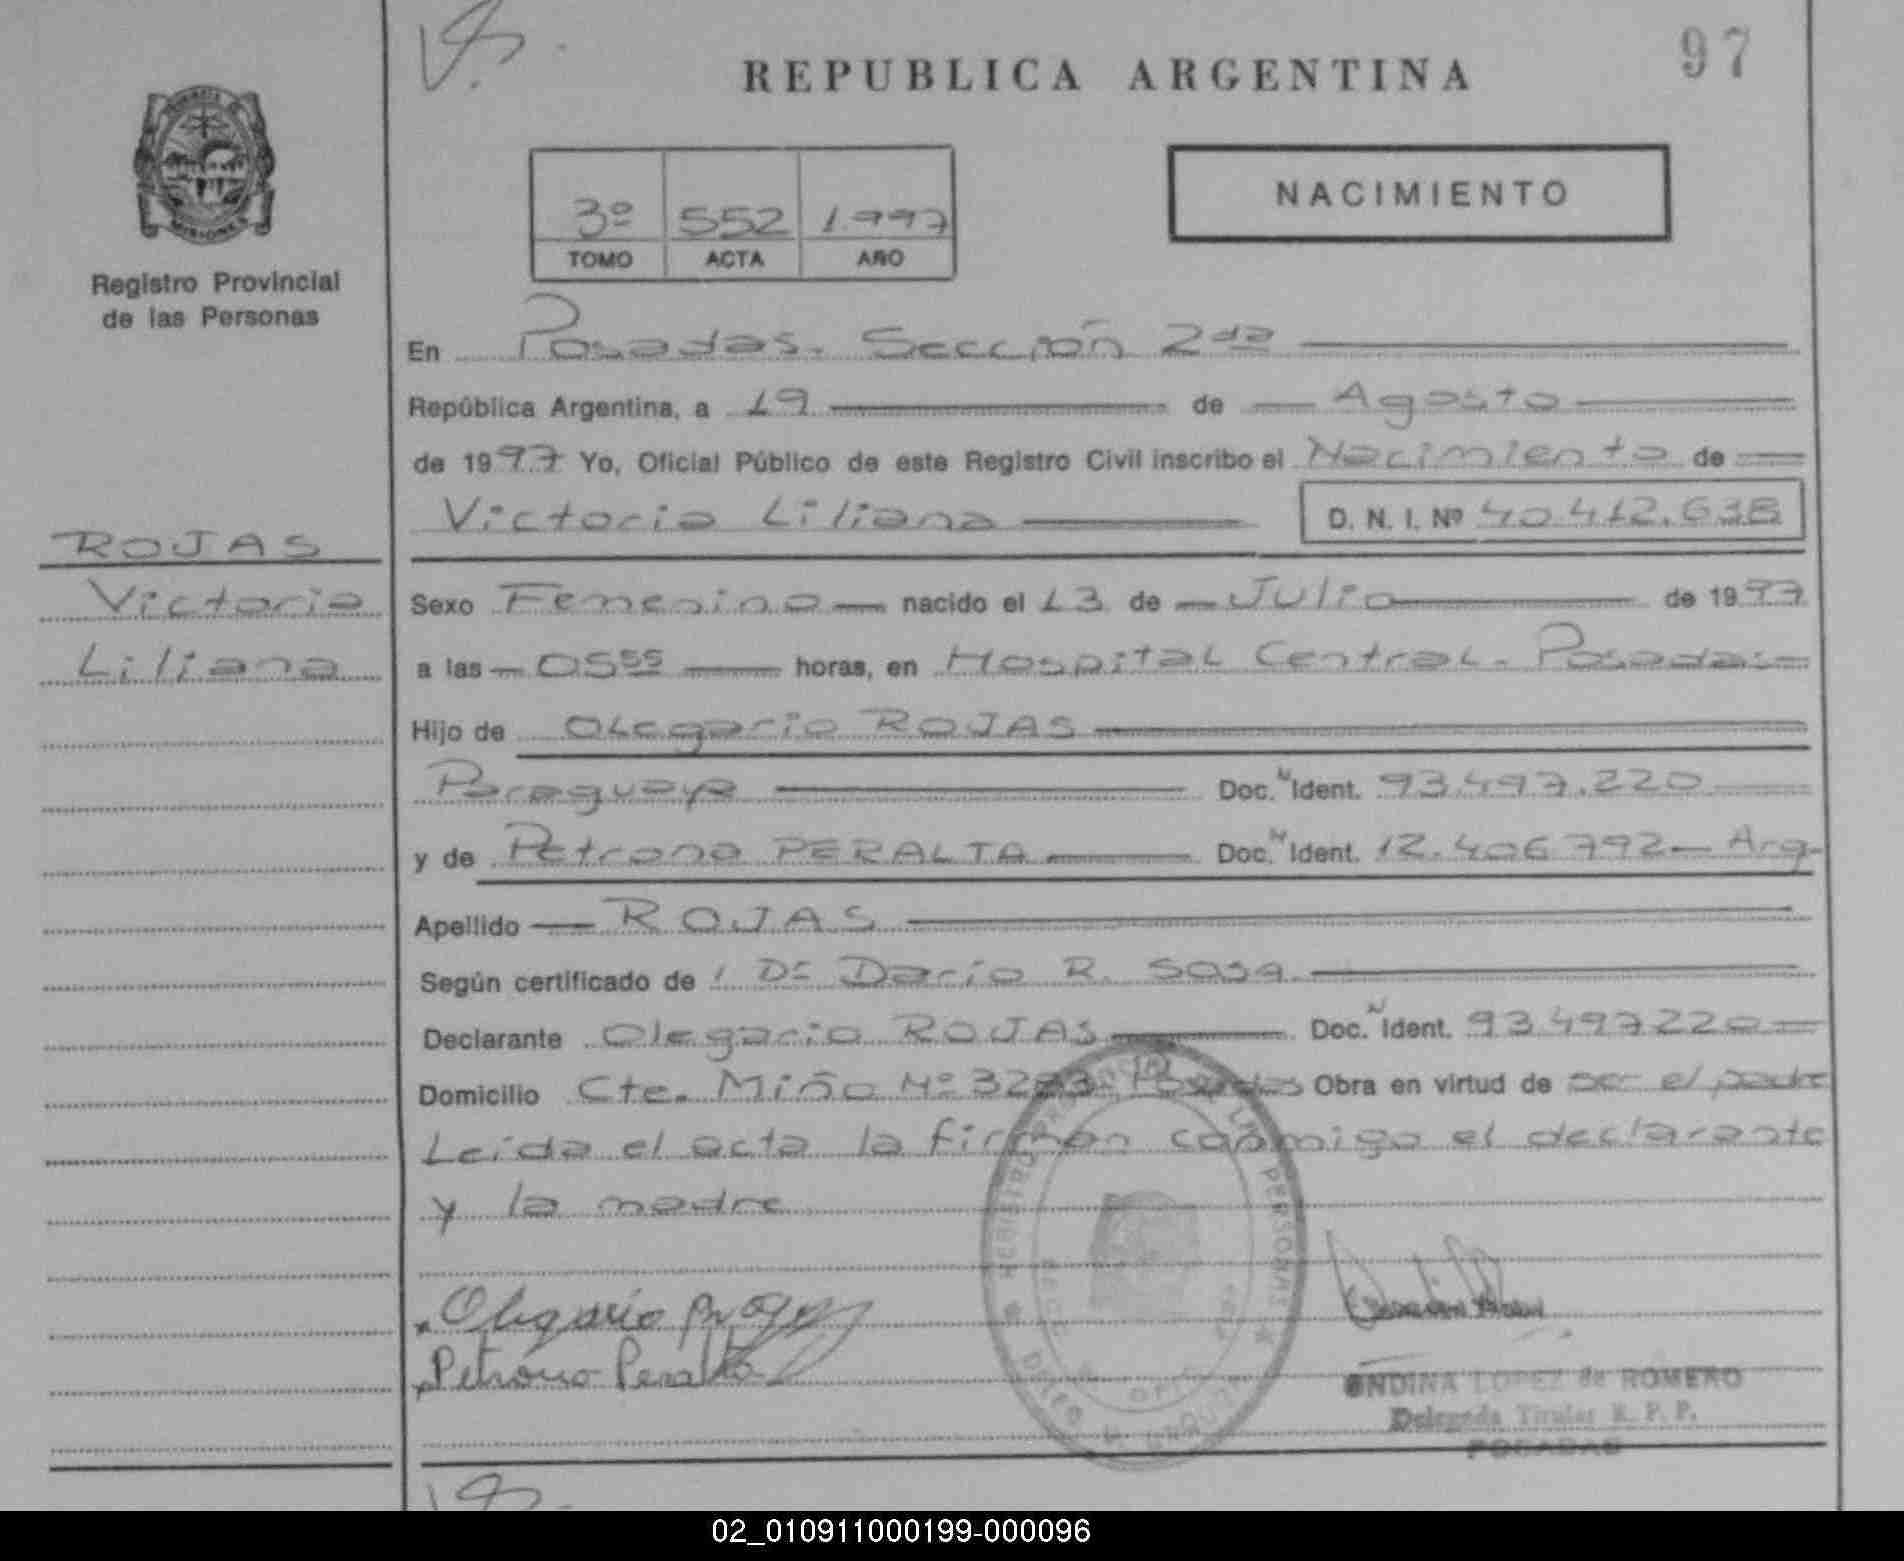 97
REPUBLICA ARGENTINA
NACIMIENTO
3º 552 1.997
TOMO ACTA AÑO
MISIONES
Registro Provincial
de las Personas
En Posadas. Sección 2da
República Argentina, a 19 de Agosto
de 1997 Yo, Oficial Público de este Registro Civil inscribo el Nacimiento de
Victoria Liliana D. N. I. Nº 40.412.638
ROJAS
Victoria
Liliana
Sexo Femenino nacido el 13 de Julio de 1997
a las 05 55 horas, en Hospital Central. Posadas
Hijo de Olegario ROJAS
Paraguaya Doc. N Ident. 93.497.220
y de Petrona PERALTA Doc. N Ident. 12.406792 Arg.
Apellido ROJAS
Según certificado de Dr Dario R. Sosa
Declarante Olegario ROJAS Doc. N Ident. 93 497220
Domicilio Cte. Miño Nº Posadas Obra en virtud de ser el padre
Leida el acta la firman conmigo el declarante
y la madre
REGISTRO PROVINCIAL DE LAS PERSONAS
Olegario
Petrona Peralta
ONDINA LOPEZ de ROMERO
Delegada Titular R. P. P.
POSADAS
02_010911000199-000096